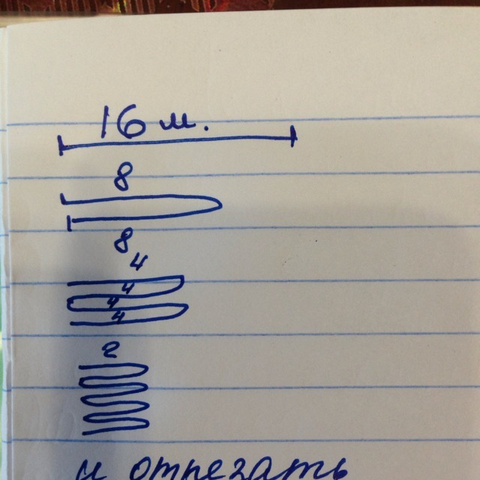 16 м.
8
8
4
4
4
4
2
и отрезать